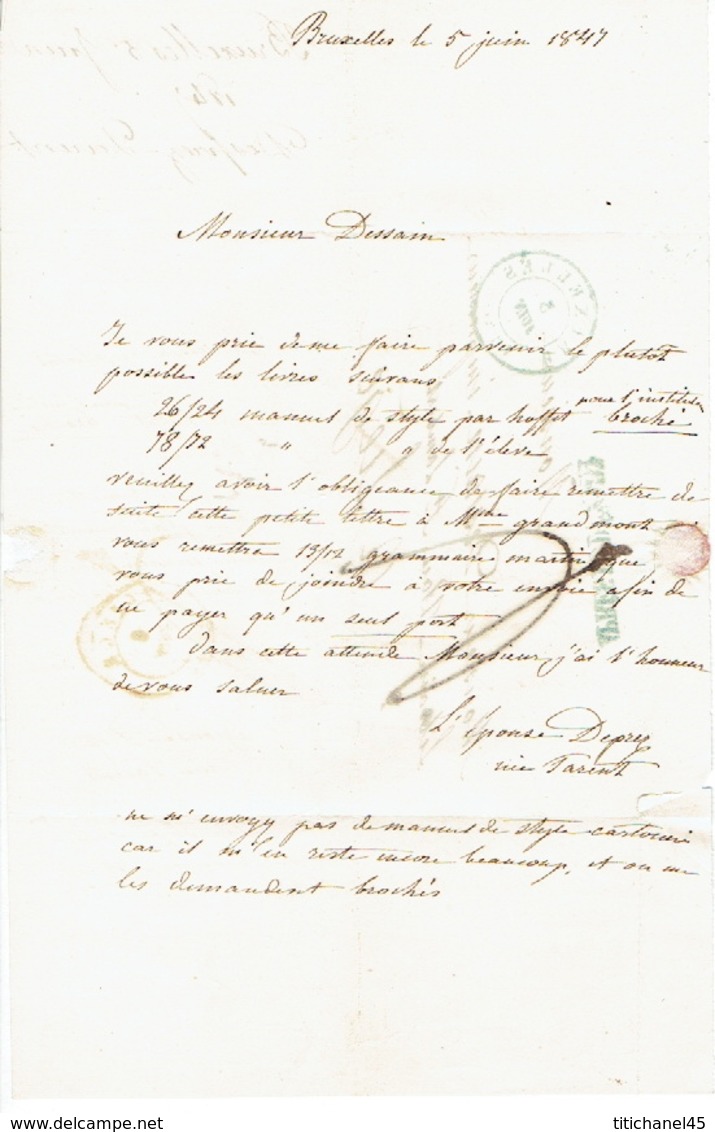 Bruxelles le 5 juin 1847
Monsieur Dessain
Je vous prie de me faire parvenir le plutot
possible les livres suivans
pour l'institu
26/24 manuel de style par hoffet broché
78/72 " " de l'éleve
veuillez avoir l'obligeance de faire remettre de
suite cette petite lettre à Mme grandmont
vous remettre 13/12 grammaire martin que
vous prie de joindre à votre envoie afin de
ne payer qu'un seul port
Dans cette attende Monsieur, j'ai l'honneur
de vous saluer
L'épouse Deprez
née Parent
ne m'envoyy pas de manuel de style cartonné
car il m'en reste encore beaucoup, et on me
les demandent brochés
www.delcampe.net
titichanel45